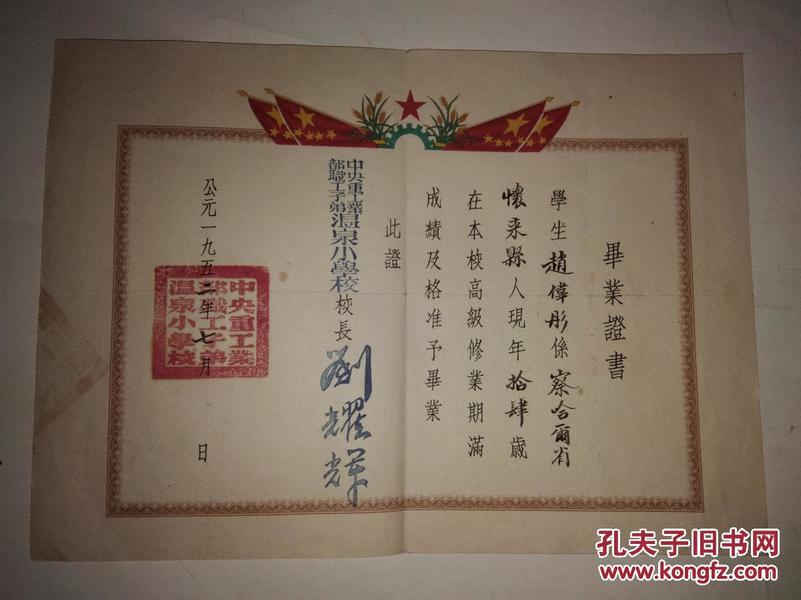 畢業證書
學生趙偉彤係察哈爾省
懷來縣人現年拾肆歲
在本校高級修業期滿
成績及格准予畢業
此證
中央重工業
部職工子弟溫泉小學校校長劉耀輝
公元一九五二年七月 日
中央重工業
部職工子弟
溫泉小學校
孔夫子旧书网
www.kongfz.com